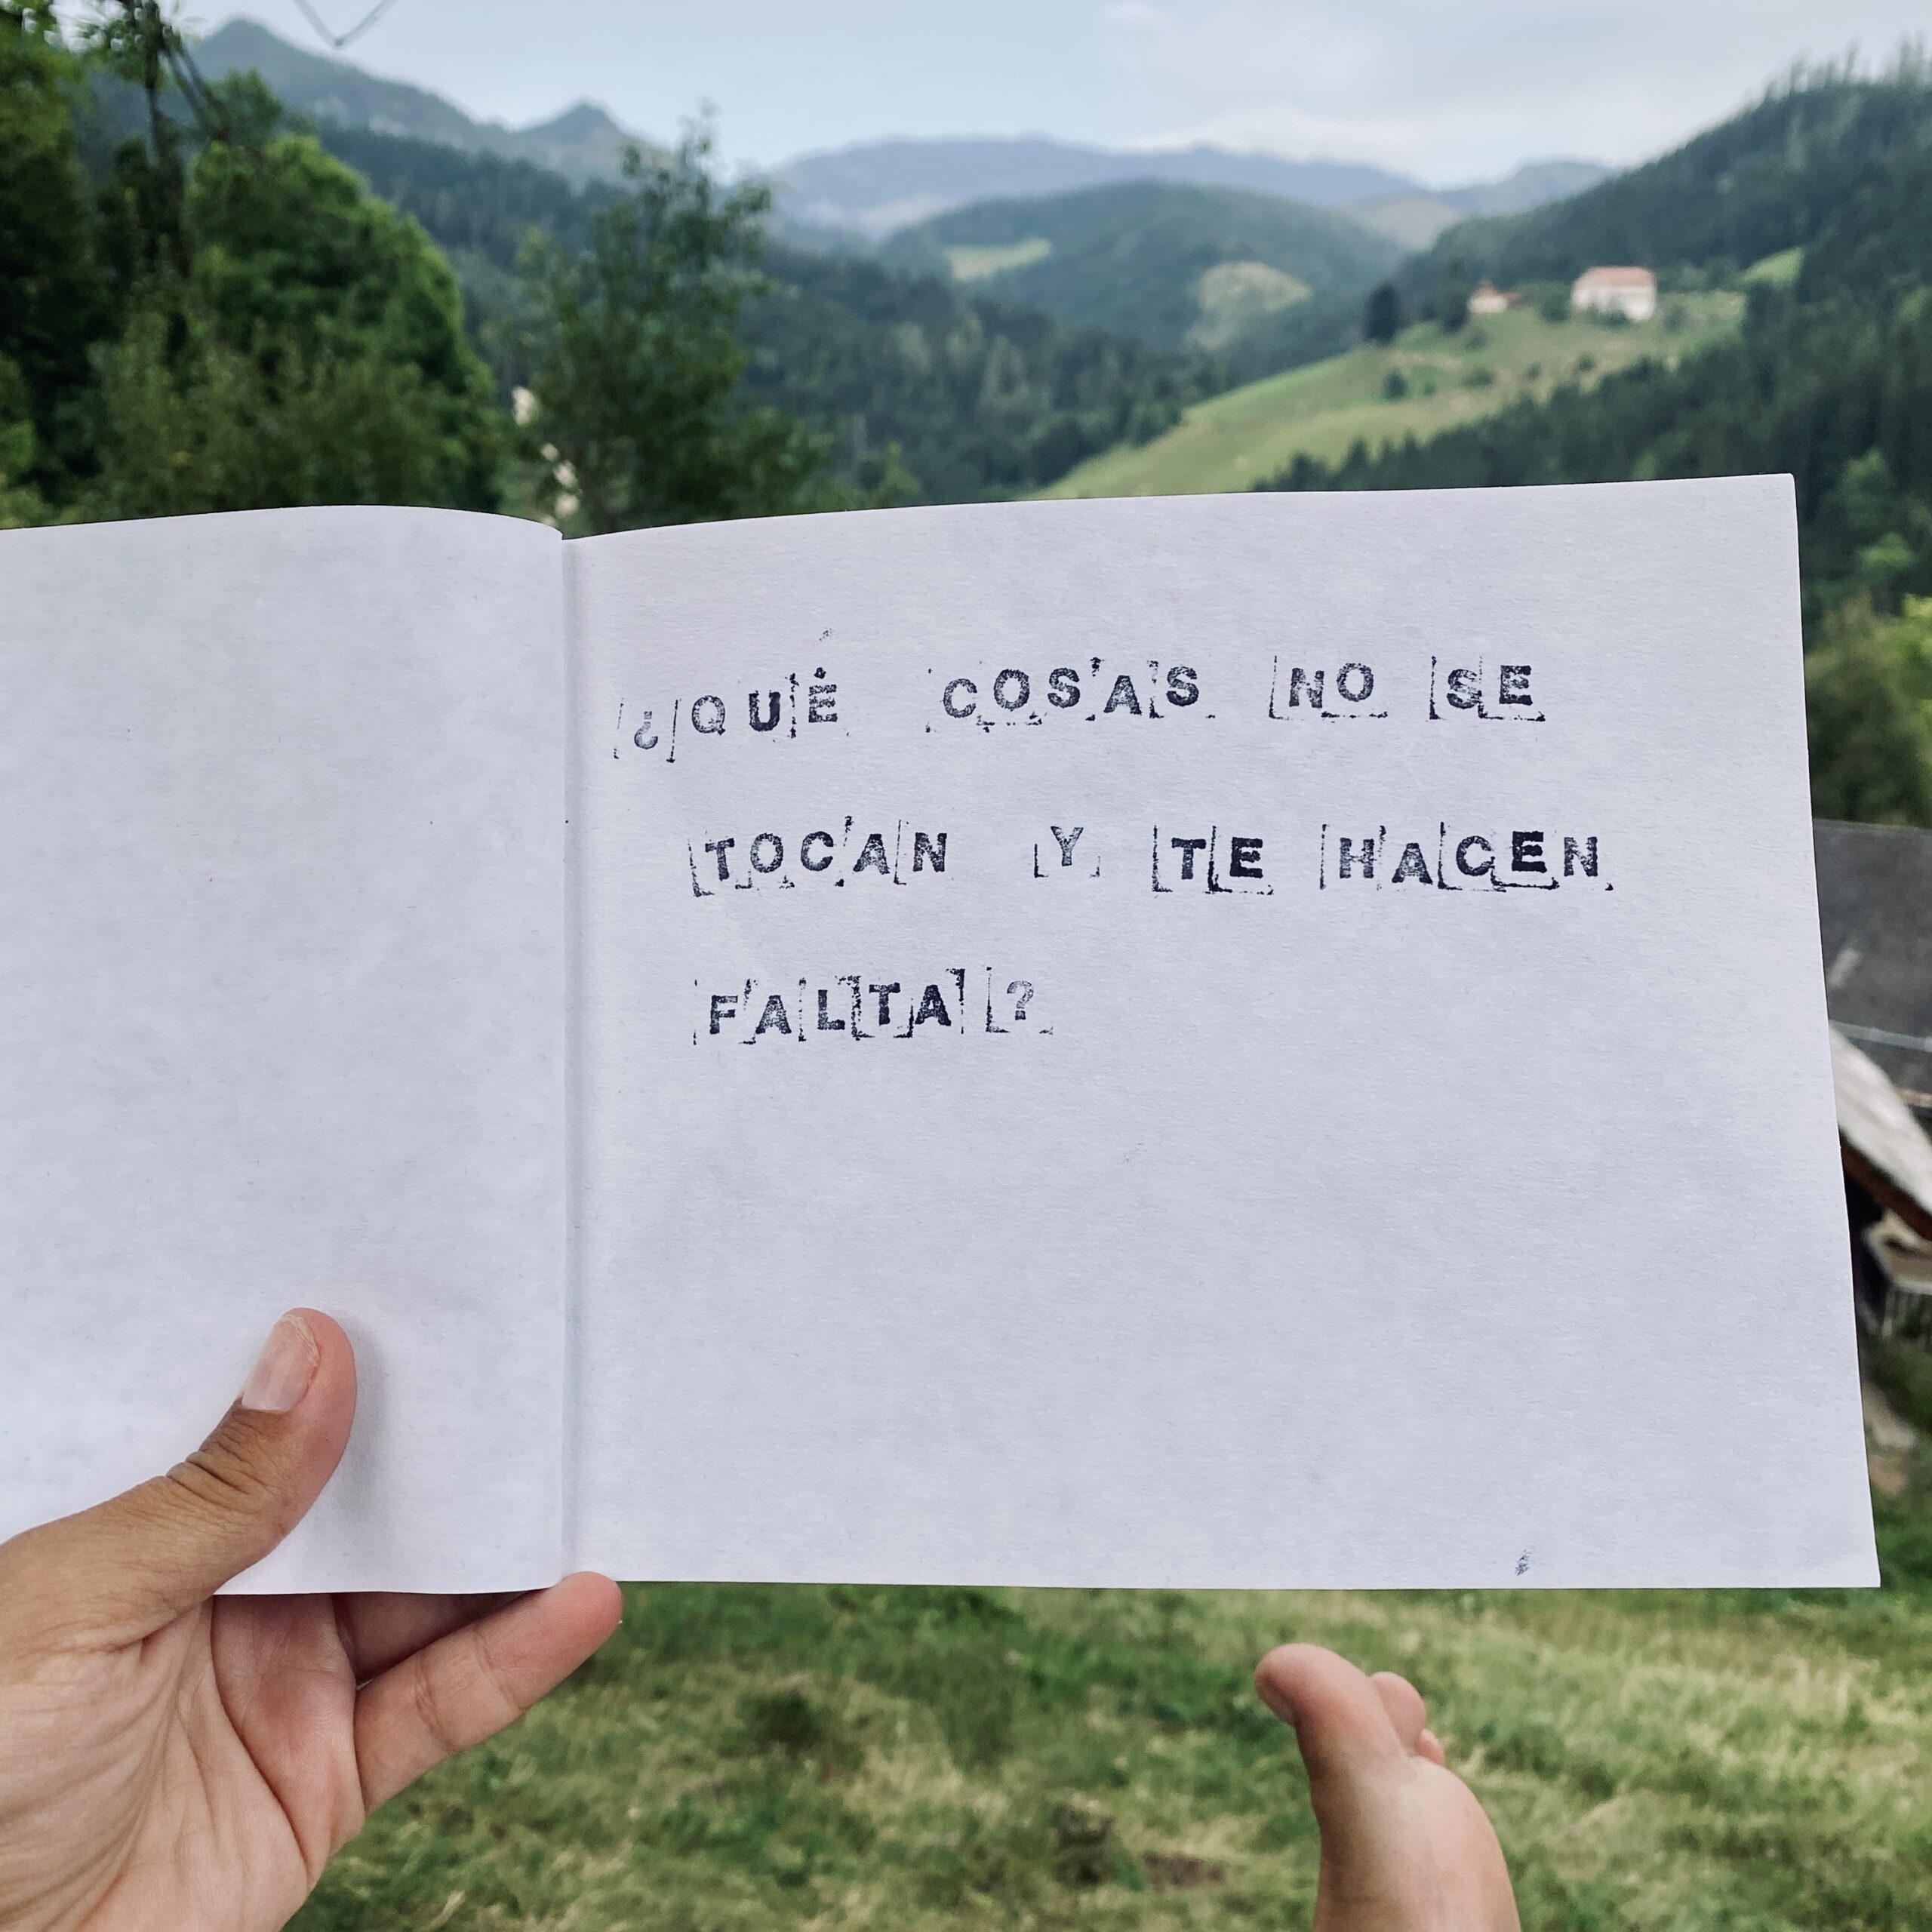 ¿QUÉ COSAS NO SE
TOCAN Y TE HACEN
FALTA?